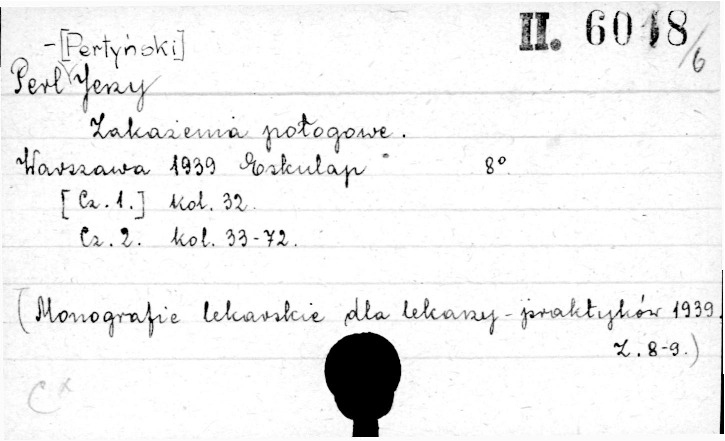 II. 6018/6
-[Pertyński]
Perl Jerzy
Zakażenia połogowe.
Warszawa 1939 Eskulap 8°
[Cz. 1.] kol. 32.
Cz. 2. kol. 33-72.
(Monografie lekarskie dla lekarzy-praktyków 1939.
Z. 8-9.)
Cx